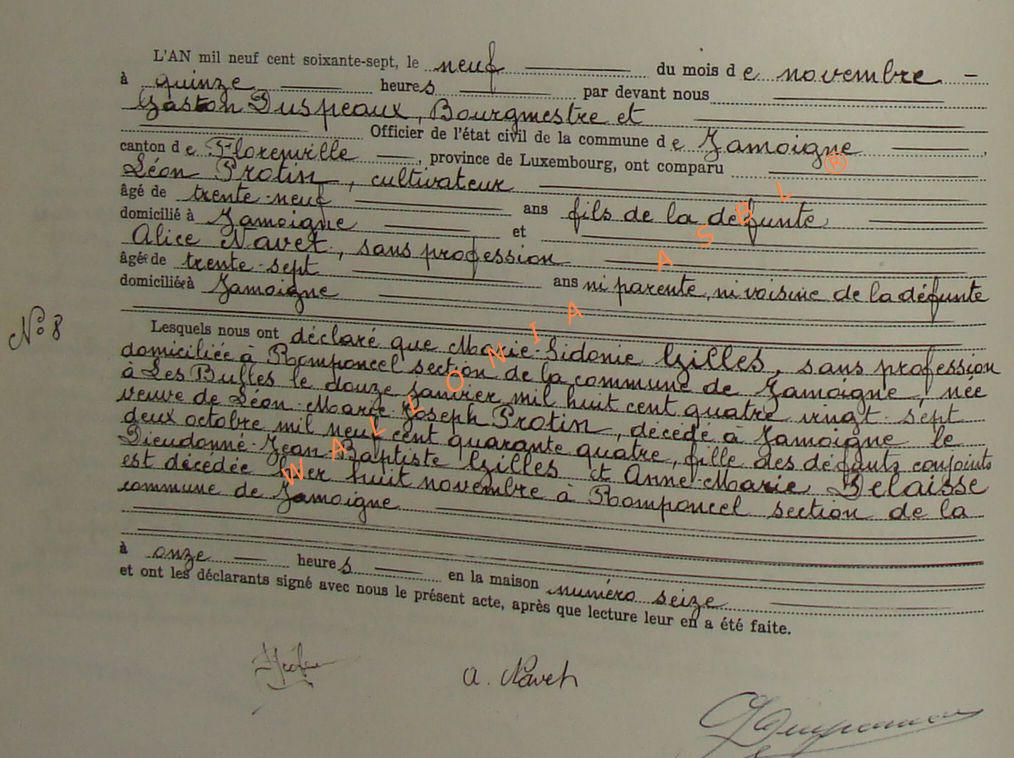 L'AN mil neuf cent soixante-sept, le neuf du mois de novembre
à quinze heures par devant nous
Gaston Duspeaux, Bourgmestre et
Officier de l'état civil de la commune de Jamoigne,
canton de Florenville, province de Luxembourg, ont comparu
Léon Protin, cultivateur
âgé de trente-neuf ans fils de la défunte
domicilié à Jamoigne et
Alice Navet, sans profession
âgée de trente-sept ans ni parente, ni voisine de la défunte
domiciliée à Jamoigne
N° 8
Lesquels nous ont déclaré que Marie-Sidonie Gilles, sans profession
domiciliée à Romponcel section de la commune de Jamoigne, née
à Les Bulles le douze janvier mil huit cent quatre vingt sept
veuve de Léon-Marie-Joseph Protin, décédé à Jamoigne le
deux octobre mil neuf cent quarante quatre, fille des défunts conjoints
Dieudonné-Jean-Baptiste Gilles et Anne-Marie Delaisse
est décédée hier huit novembre à Romponcel section de la
commune de Jamoigne
à onze heures en la maison numéro seize
et ont les déclarants signé avec nous le présent acte, après que lecture leur en a été faite.
A. Navet
WALLONIA ASBL ®